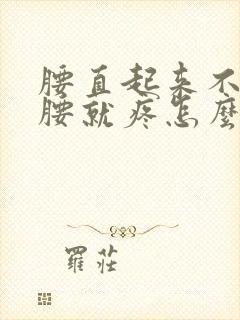 腰直起来不
腰就疼怎麼
羅莊